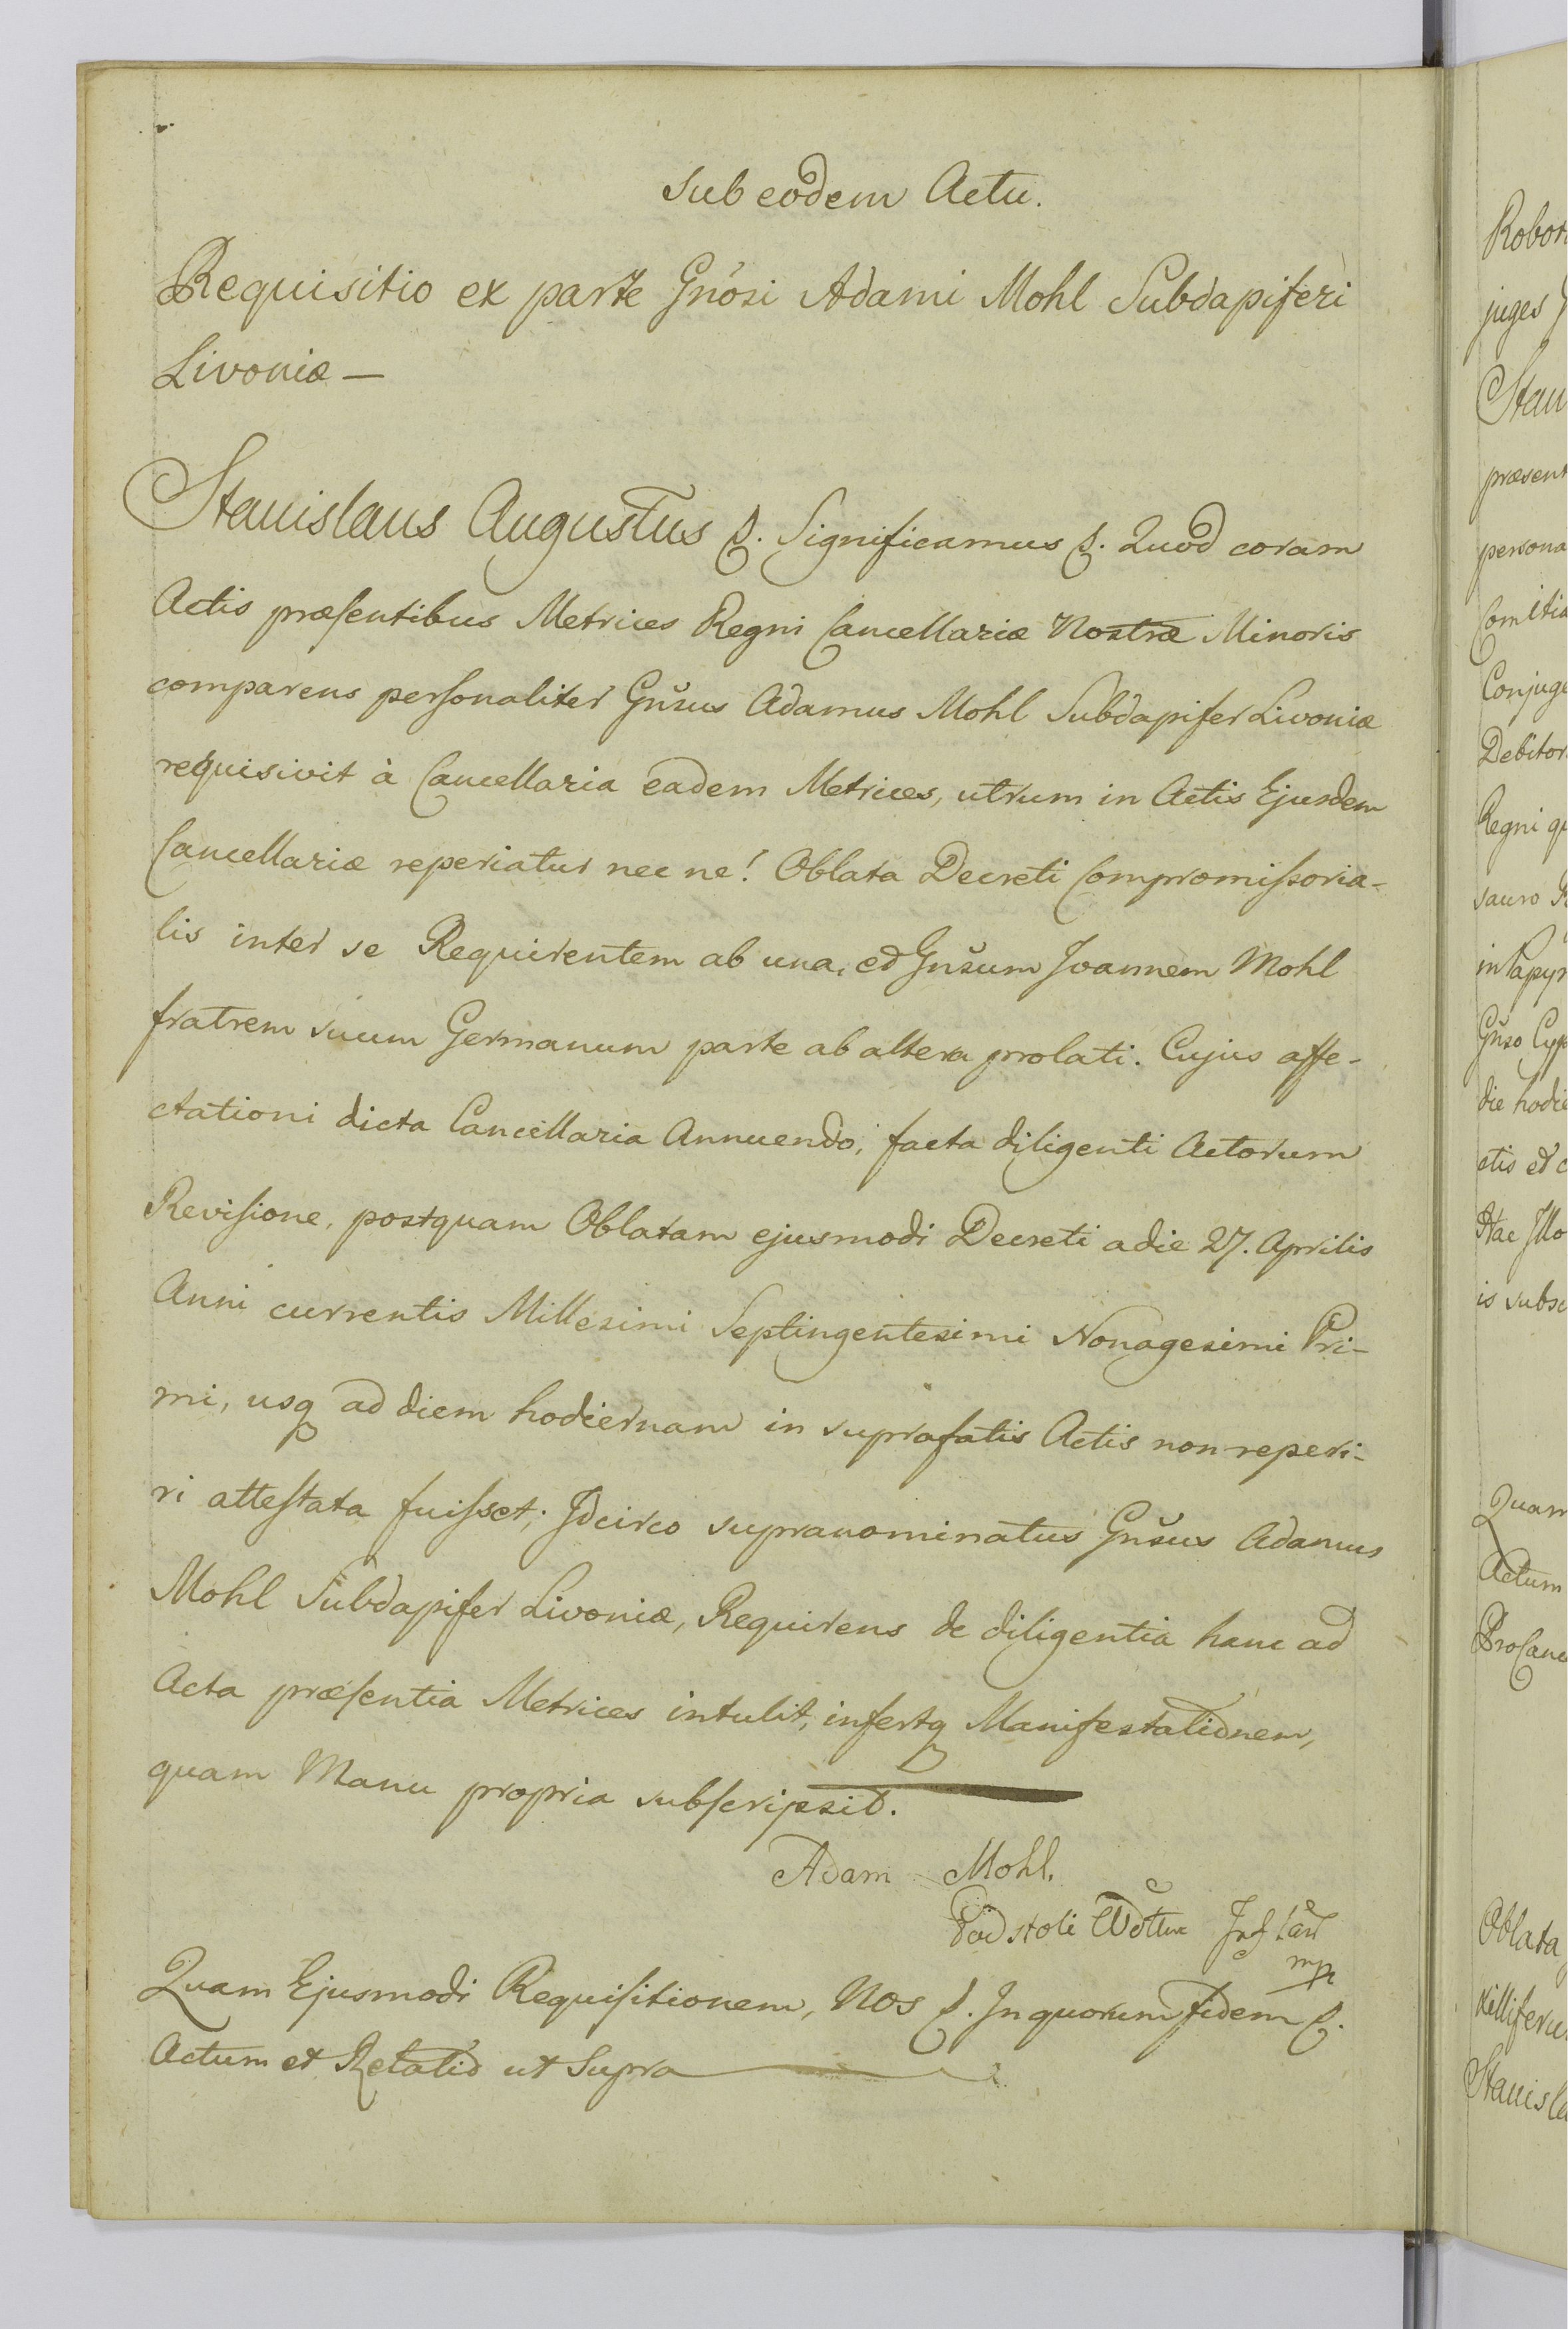 Sub eodem Actu.
Requisitio ex parte Gnosi Adami Mohl Subdapiferi
Livoniæ —
Stanislaus Augustus &. Significamus &. Quod coram
Actis præsentibus Metrices Regni Cancellariæ Nostræ Minoris
comparens personaliter Gnsus Adamus Mohl Subdapifer Livoniæ
requisivit à Cancellaria eadem Metrices, utrum in Actis Ejusdem
Cancellariæ reperiatur nec ne! Oblata Decreti Compromissoria-
lis inter se Requirentem ab una, et Gnsum Joannem Mohl
fratrem suum Germanum parte ab altera prolati. Cujus affe-
ctationi dicta Cancellaria Annuendo, facta diligenti Actorum
Revisione, postquam Oblatam ejusmodi Decreti a die 27. Aprilis
Anni currentis Millesimi Septingentesimi Nonagesimi Pri-
mi, usq ad diem hodiernam in suprafatis Actis non reperi-
ri attestata fuisset; Idcirco supranominatus Gnsus Adamus
Mohl Subdapifer Livoniæ, Requirens de diligentia hanc ad
Acta præsentia Metrices intulit, infertq Manifestationem,
quam Manu propria subscripsit.
Adam Mohl.
Podstoli
mp
Quam Ejusmodi Requisitionem, Nos &. In quorum fidem &.
Actum et Relatio ut Supra
Robor
juges
Stan
præsent
persona
Comitia
Conjuge
Debitor
Regni qu
sauro
in Papyr
Gnso Cyp
die hodie
ctis et c
Hac Illo
is subsc
Quam
Actum
ProCanc
Oblata
xilliferu
Stanisla